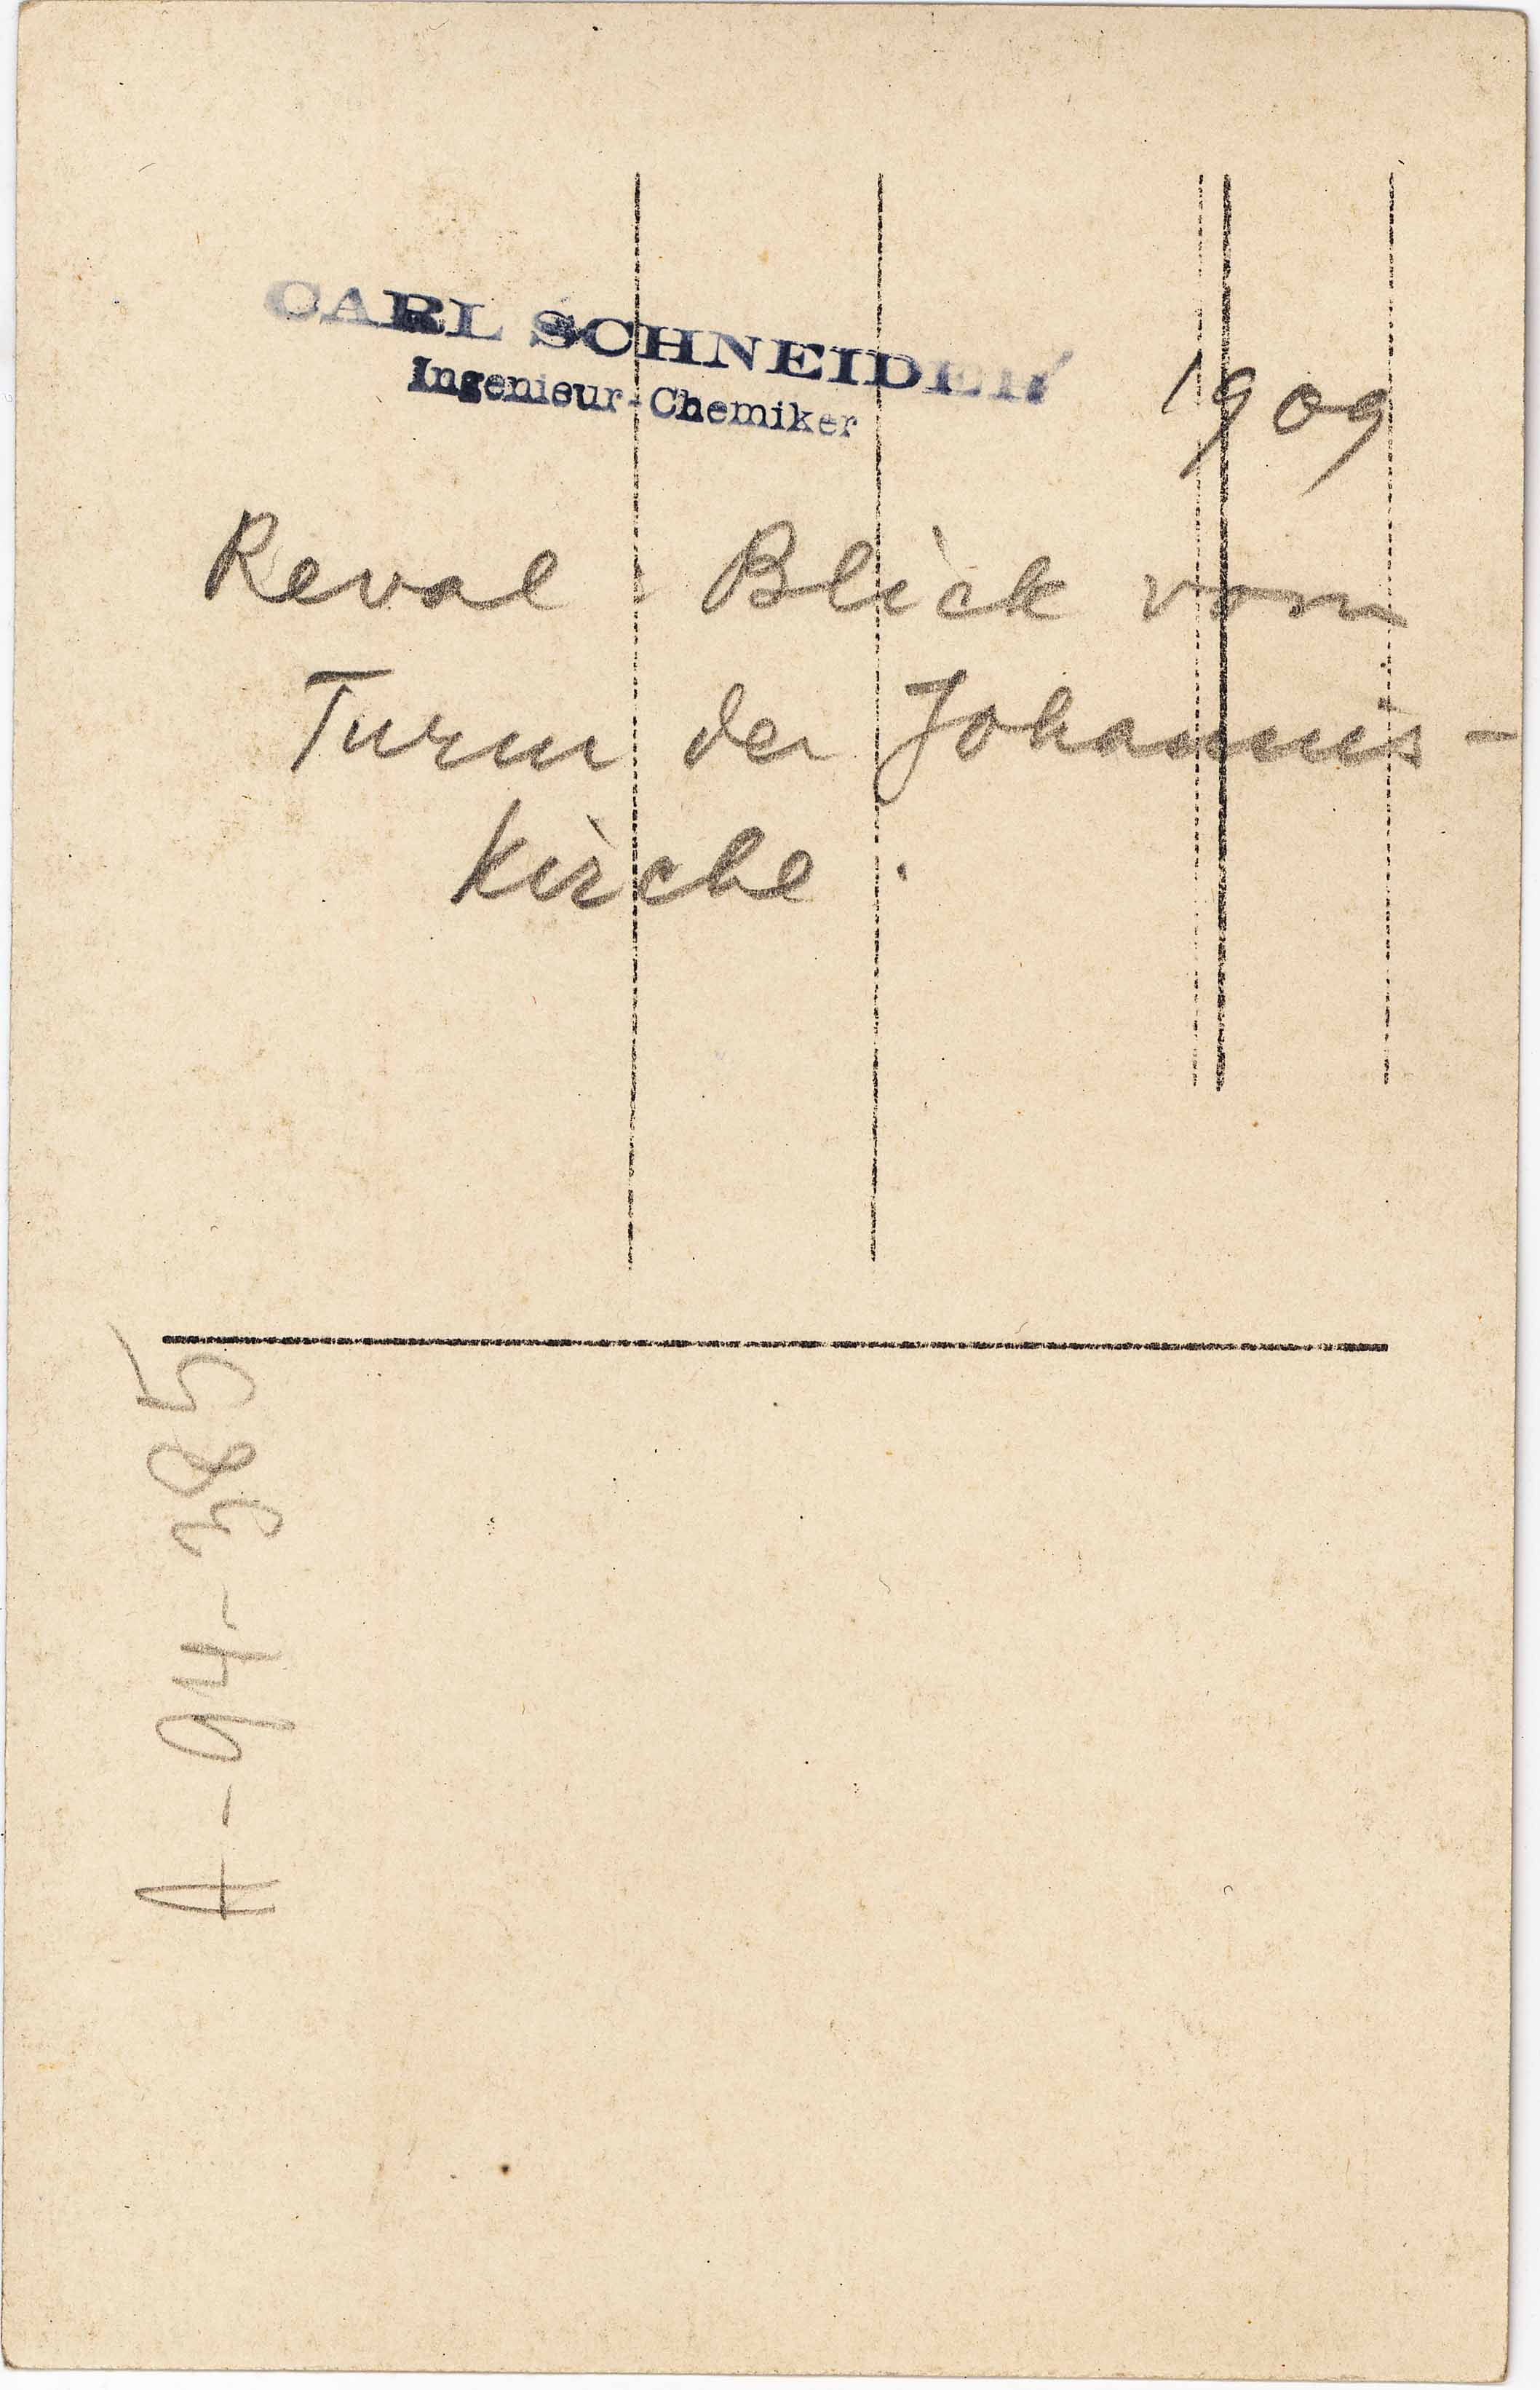 CARL SCHNEIDER
Ingenieur-Chemiker
1909
Reval: Blick vom
Turm der Johannis-
kirche.
A-94-385